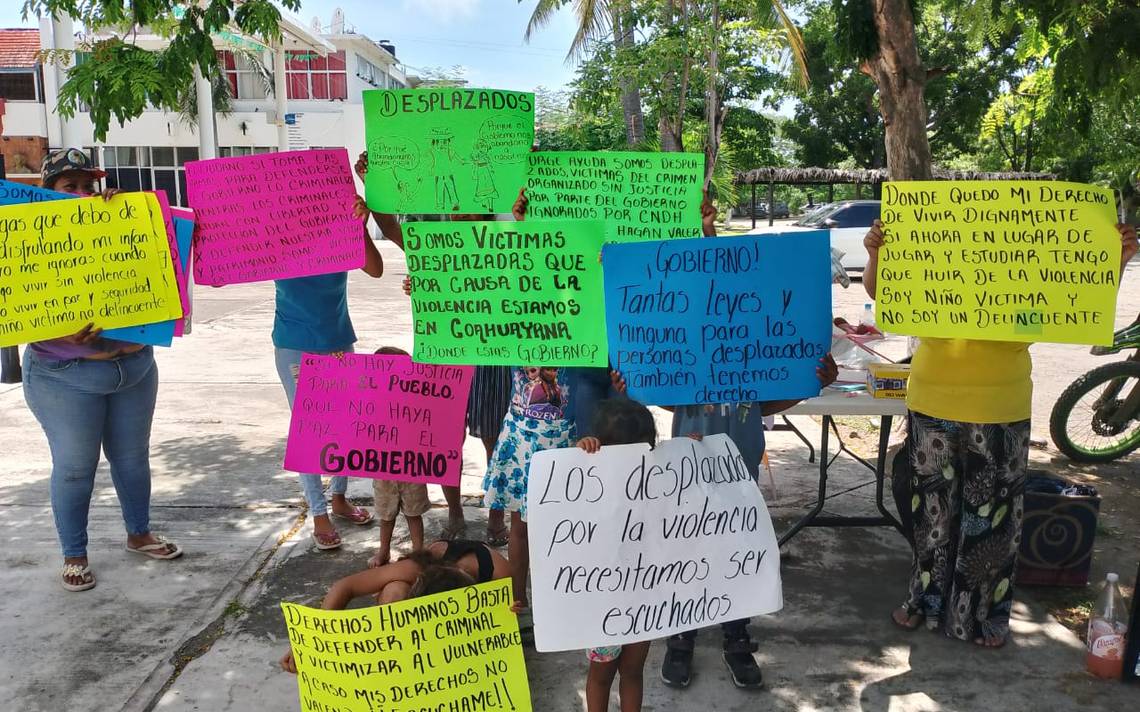 Somos
gas que debo de
disfrutando mi infan
ro me ignoras cuando
o vivir sin violencia
vivir en paz y seguridad
nino victima no delincuente
si toma las
para defenderse
Gobierno lo criminaliza
con Libertad y
Proteccion del Gobierno
x defender nuestra vida
y patrimonio somos victimas
Gobierno y criminal
Desplazados
Porque
abandonamos
Porque el
Gobierno nos
abandona a
nosotros
urge ayuda somos despla-
zados, victimas del crimen
organizado sin justicia
por parte del gobierno
ignorados por CNDH
Hagan valer
Somos Victimas
desplazadas que
por causa de la
violencia estamos
en Coahuayana
¿Donde estas Gobierno?
¡Gobierno!
Tantas leyes y
ninguna para las
personas desplazadas
También tenemos
derecho
Donde quedo mi derecho
de vivir dignamente
si ahora en lugar de
jugar y estudiar tengo
que huir de la violencia
soy niño victima y
no soy un delincuente
"Si no hay justicia
para el pueblo,
que no haya
paz para el
Gobierno"
Los desplazados
por la violencia
necesitamos ser
escuchados
Derechos Humanos Basta
de defender al criminal
y victimizar al vulnerable
Acaso mis derechos no
valen escuchame!!
Frozen